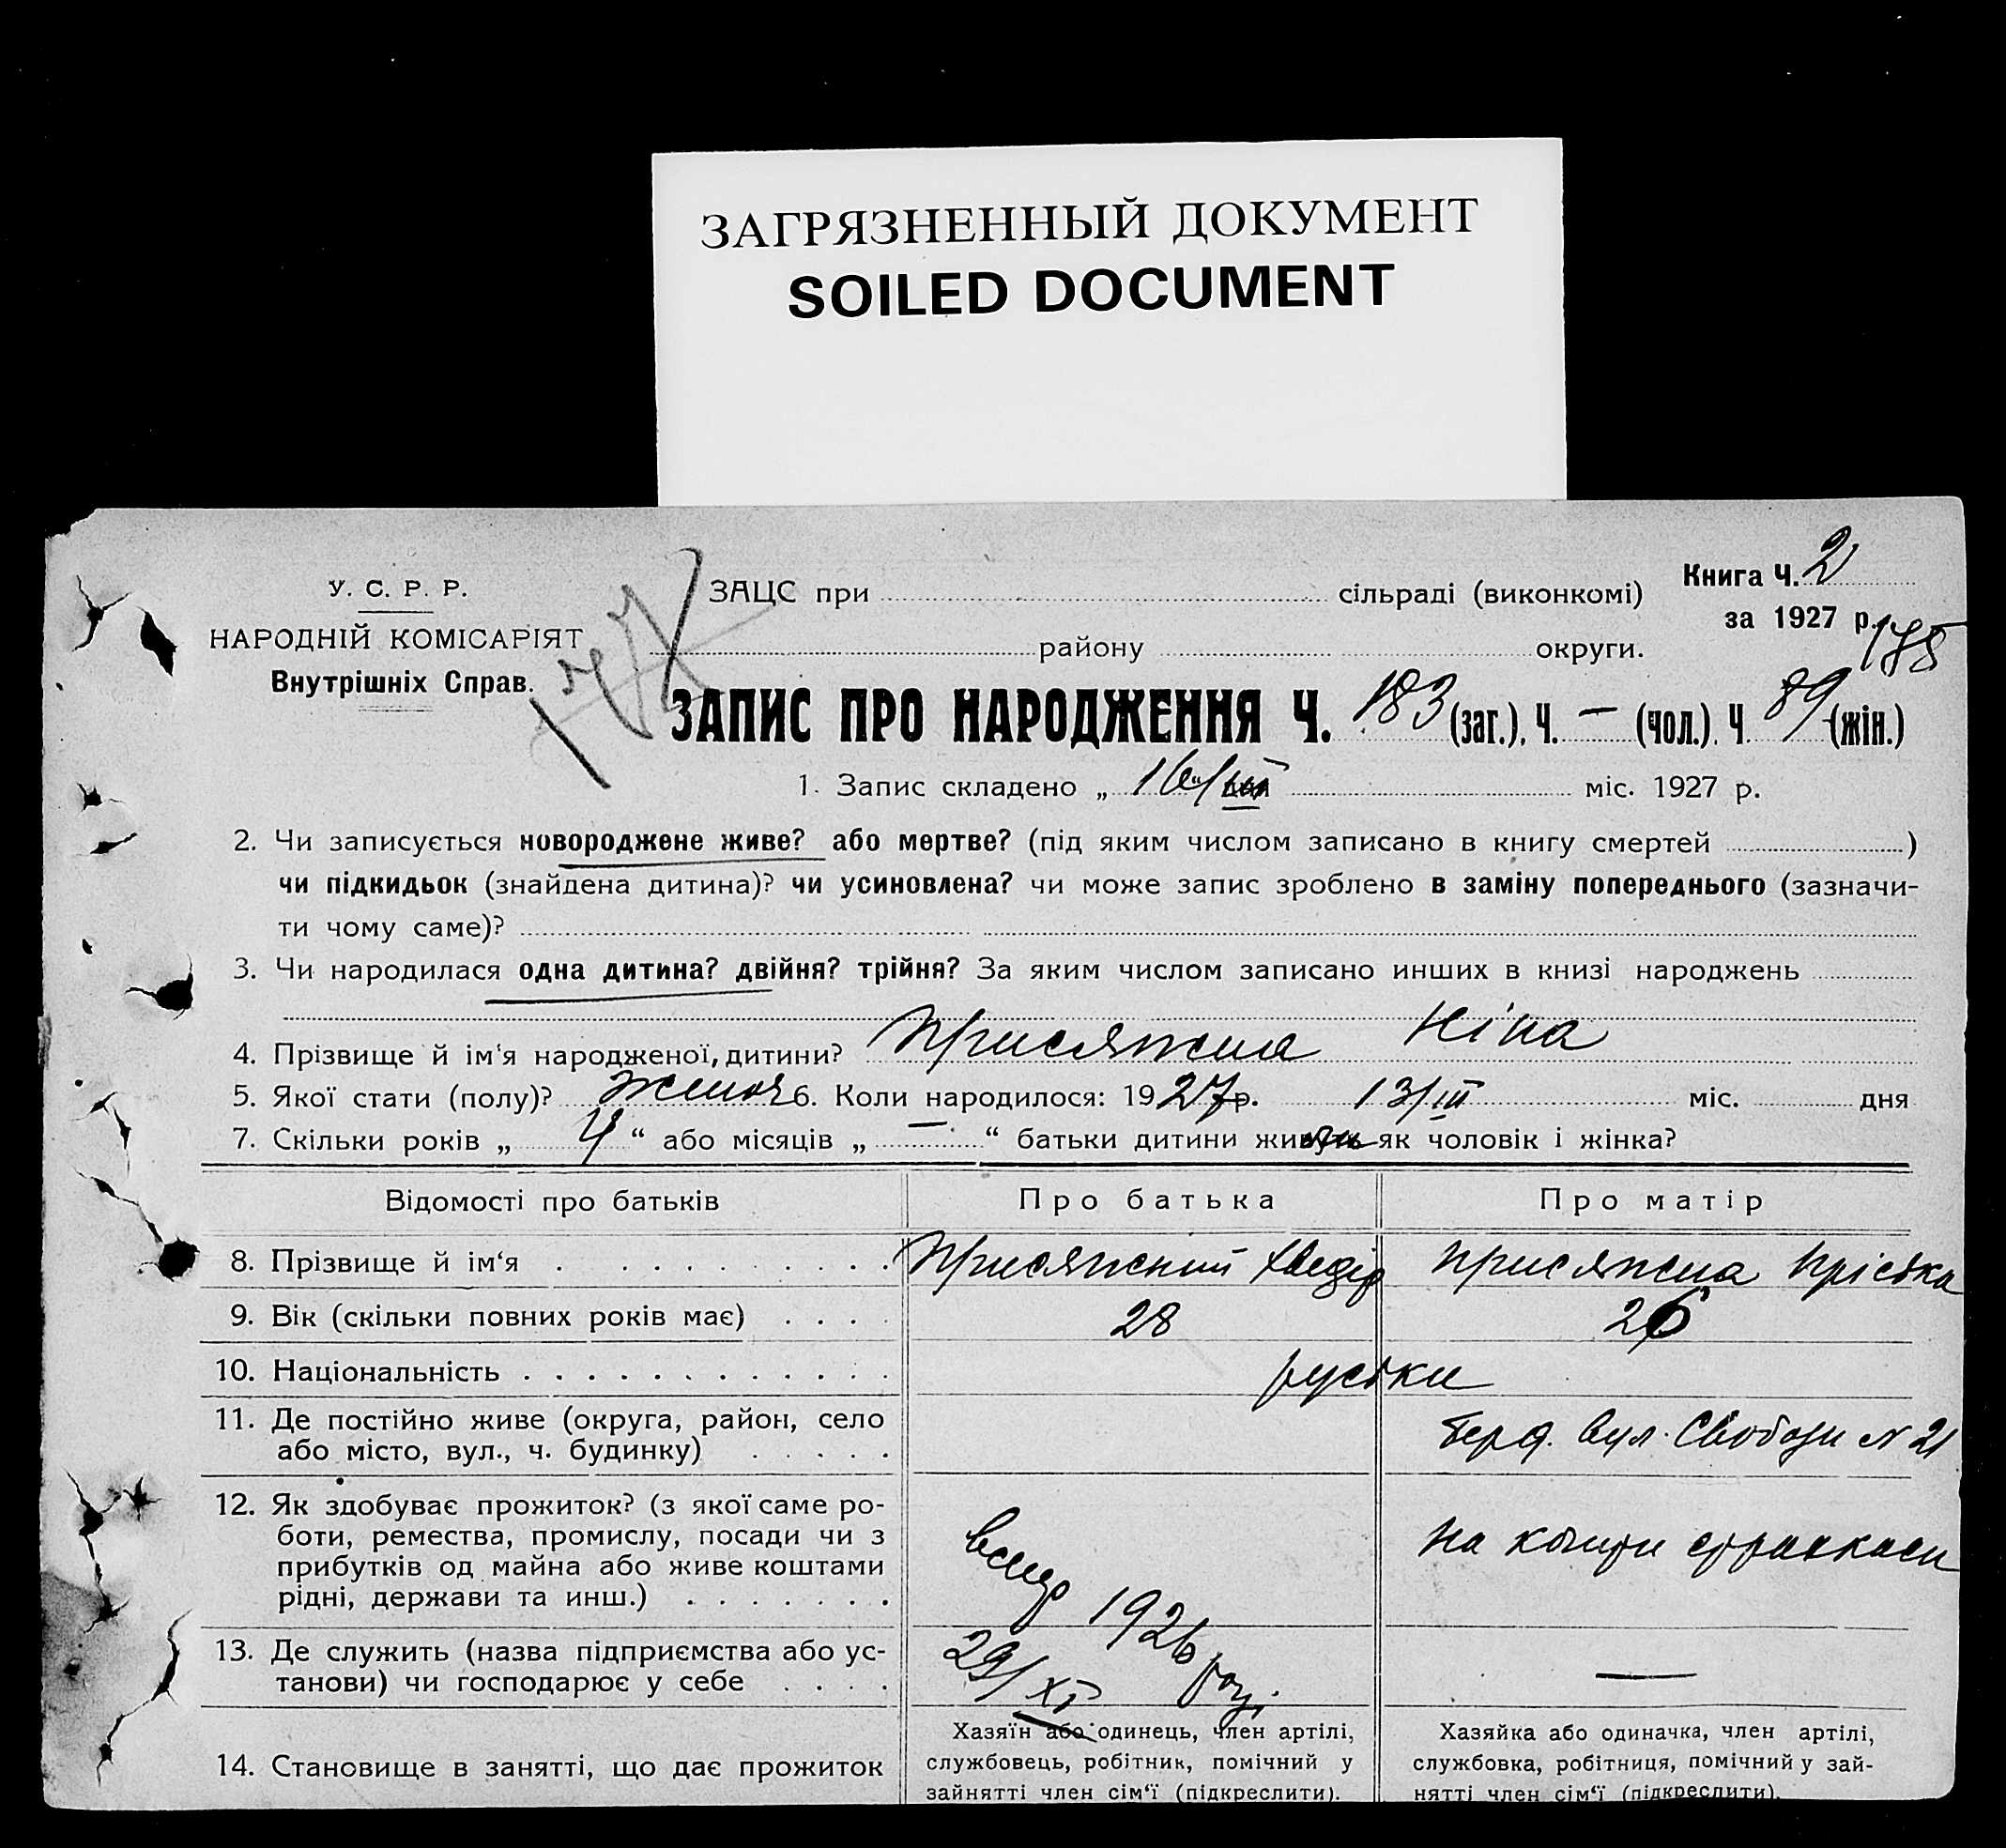 ЗАГРЯЗНЕННЫЙ ДОКУМЕНТ
SOILED DOCUMENT
У. С. Р. Р.
НАРОДНІЙ КОМІСАРІЯТ
Внутрішніх Справ.
ЗАЦС при сільраді (виконкомі)
району округи.
Книга Ч. 2
за 1927 р.
175
ЗАПИС ПРО НАРОДЖЕННЯ Ч. 183 (заг.), Ч. — (чол.). Ч. 89 (жін.)
1. Запис складено „ 16/III міс. 1927 р.
2. Чи записується новороджене живе? або мертве? (під яким числом записано в книгу смертей )
чи підкидьок (знайдена дитина)? чи усиновлена? чи може запис зроблено в заміну попереднього (зазначи-
ти чому саме)?
3. Чи народилася одна дитина? двійня? трійня? За яким числом записано инших в книзі народжень
4. Прізвище й ім‘я народженої, дитини? Присяжна Ніна
5. Якої стати (полу)? жіноч 6. Коли народилося: 1927 р. 13/III міс. дня
7. Скільки років „ 4 “ або місяців „ — “ батьки дитини живуть як чоловік і жінка?
Відомості про батьків
Про батька
Про матір
8. Прізвище й ім‘я Присяжний Хведір Присяжна Пріська
9. Вік (скільки повних років має) 28 26
10. Національність руські
11. Де постійно живе (округа, район, село
або місто, вул., ч. будинку)
Берд. вул. Свободи N 21
12. Як здобуває прожиток? (з якої саме ро-
боти, ремества, промислу, посади чи з
прибутків од майна або живе коштами
рідні, держави та инш.)
вмер 1926 році
29/XI
на кошти страхкаси
13. Де служить (назва підприємства або ус-
танови) чи господарює у себе
—
14. Становище в занятті, що дає прожиток
Хазяїн або одинець, член артілі,
службовець, робітник, помічний у
зайнятті член сім‘ї (підкреслити).
Хазяйка або одиначка, член артілі,
службовка, робітниця, помічний у зай-
нятті член сім‘ї (підкреслити).